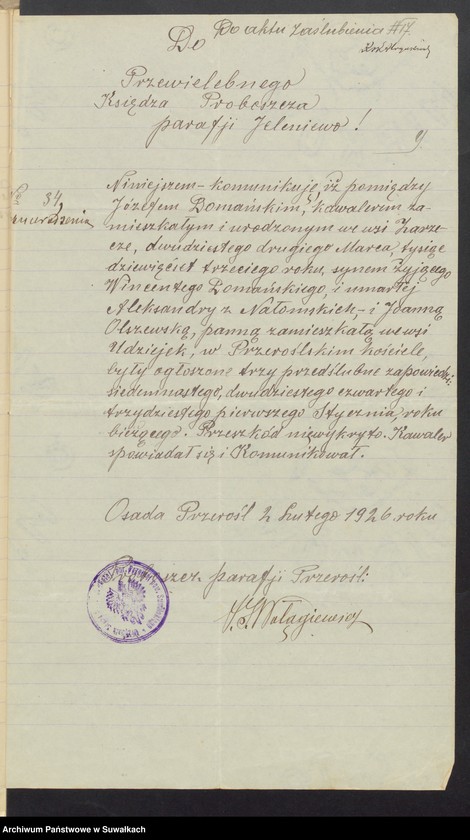 Do aktu zaślubienia #17
Do
Przewielebnego
Księdza Proboszcza
parafji Jeleniewo!
No 34
Niniejszem komunikuję, iż pomiędzy
Józefem Domańskim, kawalerem za-
mieszkałym i urodzonym we wsi Zarze-
cze, dwudziestego drugiego Marca, tysiąc
dziewięćset trzeciego roku, synem żyjącego
Wincentego Domańskiego, i umarłej
Aleksandry z Natomskich, - i Joanną
Olszewską, panną zamieszkałą we wsi
Udziejek, w Przeroślskim kościele,
były ogłoszone trzy przedślubne zapowiedzi:
siedemnastego, dwudziestego czwartego i
trzydziestego pierwszego Stycznia, roku
bieżącego. Przeszkód nie wykryto. Kawaler
spowiadał się i Komunikował.
Osada Przerośl 2 Lutego 1926 roku
parafji Przerośl:
Archiwum Państwowe w Suwałkach